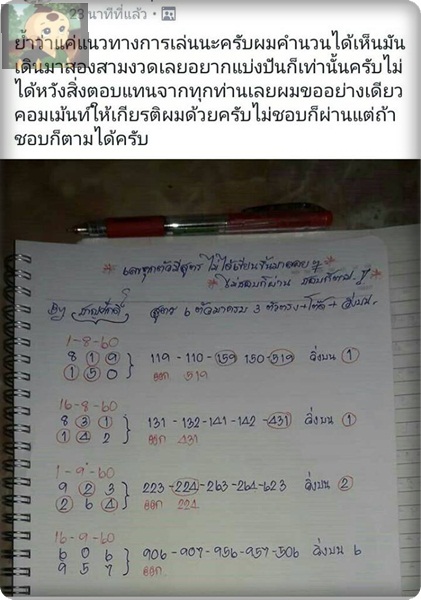 23 นาทีที่แล้ว ·
ย้ำว่าแค่แนวทางการเล่นนะครับผมคำนวนได้เห็นมัน
เดินมาสองสามงวดเลยอยากแบ่งปันก็เท่านั้นครับไม่
ได้หวังสิ่งตอบแทนจากทุกท่านเลยผมขออย่างเดียว
คอมเม้นท์ให้เกียรติผมด้วยครับไม่ชอบก็ผ่านแต่ถ้า
ชอบก็ตามได้ครับ
* เลขทุกตัวมีสูตร ไม่ได้เขียนขึ้นมาลอยๆ
* ไม่ชอบก็ผ่าน ชอบก็ตาม
By สูตร 6 ตัวมาครบ 3 ตัวตรง+โต๊ด + วิ่งบน.
1-8-60
8 1 9 119 -110 -159 150 -519 วิ่งบน 1
1 5 0 ออก 519
16-8-60
8 3 1 131 -132 -141 -142 -431 วิ่งบน 1
1 4 2 ออก 431
1-9-60
9 2 3 223 -224 -263 -264 -623 วิ่งบน 2
2 6 4 ออก 224
16-9-60
6 0 6 906 -907 -956 -957 -506 วิ่งบน 6
9 5 7 ออก